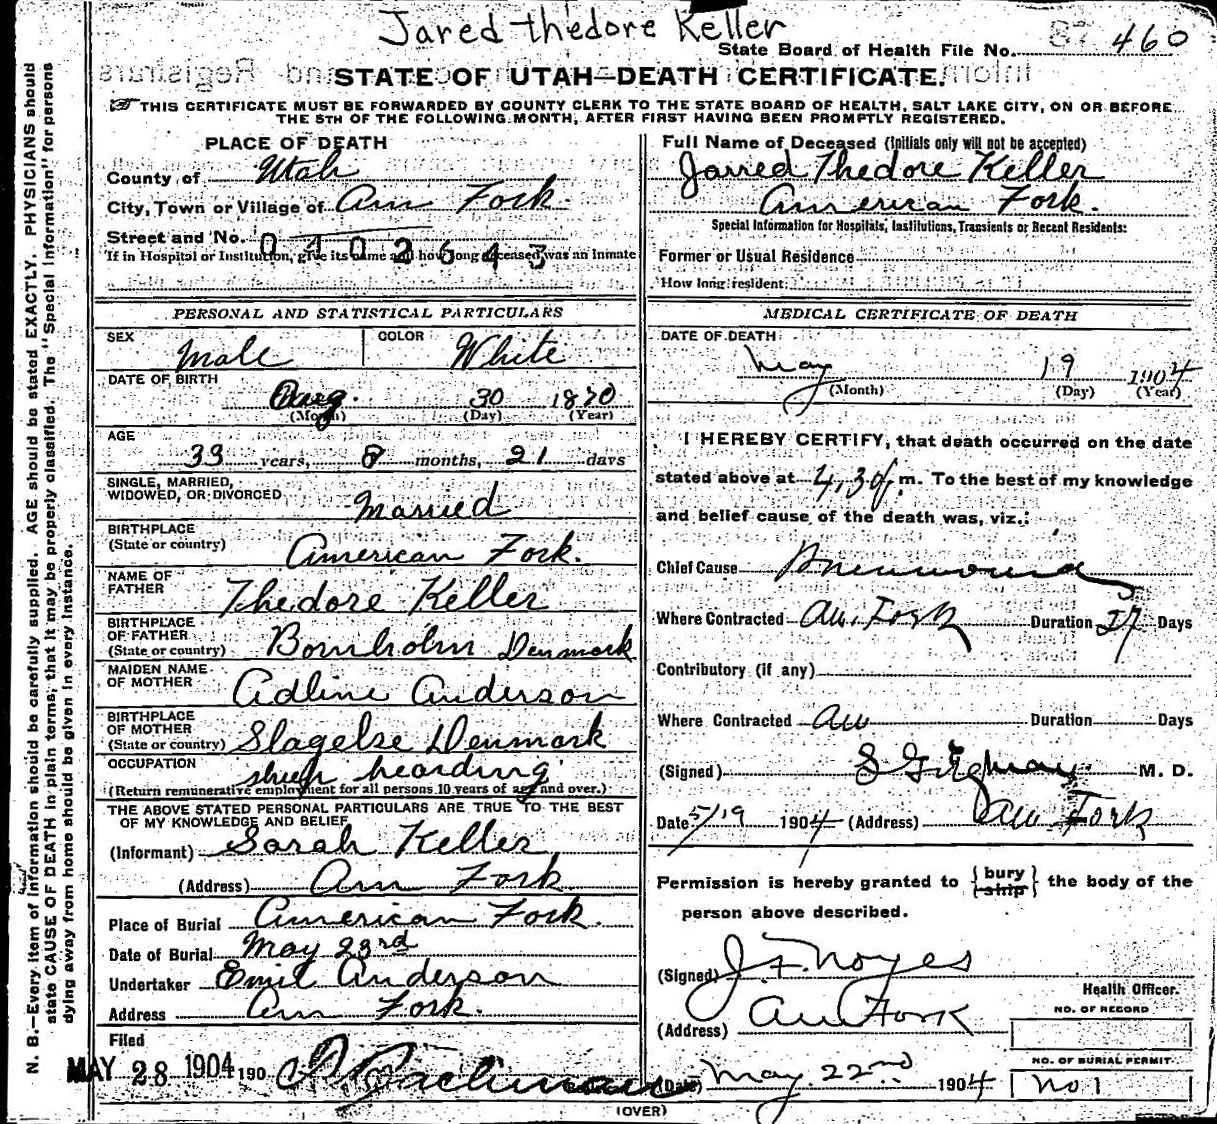 Jared Thedore Keller
State Board of Health File No. 460
STATE OF UTAH—DEATH CERTIFICATE.
THIS CERTIFICATE MUST BE FORWARDED BY COUNTY CLERK TO THE STATE BOARD OF HEALTH, SALT LAKE CITY, ON OR BEFORE
THE 5TH OF THE FOLLOWING MONTH, AFTER FIRST HAVING BEEN PROMPTLY REGISTERED.
N. B.—Every item of information should be carefully supplied. AGE should be stated EXACTLY. PHYSICIANS should
state CAUSE OF DEATH in plain terms, that it may be properly classified. The "Special Information" for persons
dying away from home should be given in every instance.
PLACE OF DEATH
County of Utah
City, Town or Village of Am Fork
Street and No.
0402643
If in Hospital or Institution, give its name and how long deceased was an inmate
PERSONAL AND STATISTICAL PARTICULARS
SEX Male COLOR White
DATE OF BIRTH
Aug. 30 1870
(Month) (Day) (Year)
AGE
33 years, 8 months, 21 days
SINGLE, MARRIED,
WIDOWED, OR DIVORCED Married
BIRTHPLACE
(State or country) American Fork.
NAME OF
FATHER Thedore Keller
BIRTHPLACE
OF FATHER
(State or country) Bornholm Denmark
MAIDEN NAME
OF MOTHER Adline Anderson
BIRTHPLACE
OF MOTHER
(State or country) Slagelse Denmark
OCCUPATION sheep hearding
(Return remunerative employment for all persons 10 years of age and over.)
THE ABOVE STATED PERSONAL PARTICULARS ARE TRUE TO THE BEST
OF MY KNOWLEDGE AND BELIEF
(Informant) Sarah Keller
(Address) Am Fork
Place of Burial American Fork.
Date of Burial May 23rd
Undertaker Emil Anderson
Address Am Fork.
Filed
MAY 28 1904 190
Full Name of Deceased (Initials only will not be accepted)
Jarred Thedore Keller
American Fork.
Special Information for Hospitals, Institutions, Transients or Recant Residents:
Former or Usual Residence
How long resident
MEDICAL CERTIFICATE OF DEATH
DATE OF DEATH
May 19 1904
(Month) (Day) (Year)
I HEREBY CERTIFY, that death occurred on the date
stated above at 4,30 m. To the best of my knowledge
and belief cause of the death was, viz.:
Chief Cause Pneumonia
Where Contracted Am. Fork Duration Days
Contributory (if any)
Where Contracted Am Duration Days
(Signed) M. D.
Date 5/19 1904 (Address) Am Fork
Permission is hereby granted to {bury
ship} the body of the
person above described.
(Signed) J. F. Noyes
Health Officer.
(Address) Am Fork
NO. OF RECORD
NO. OF BURIAL PERMIT
(Date) May. 22nd 1904 No 1
(OVER)